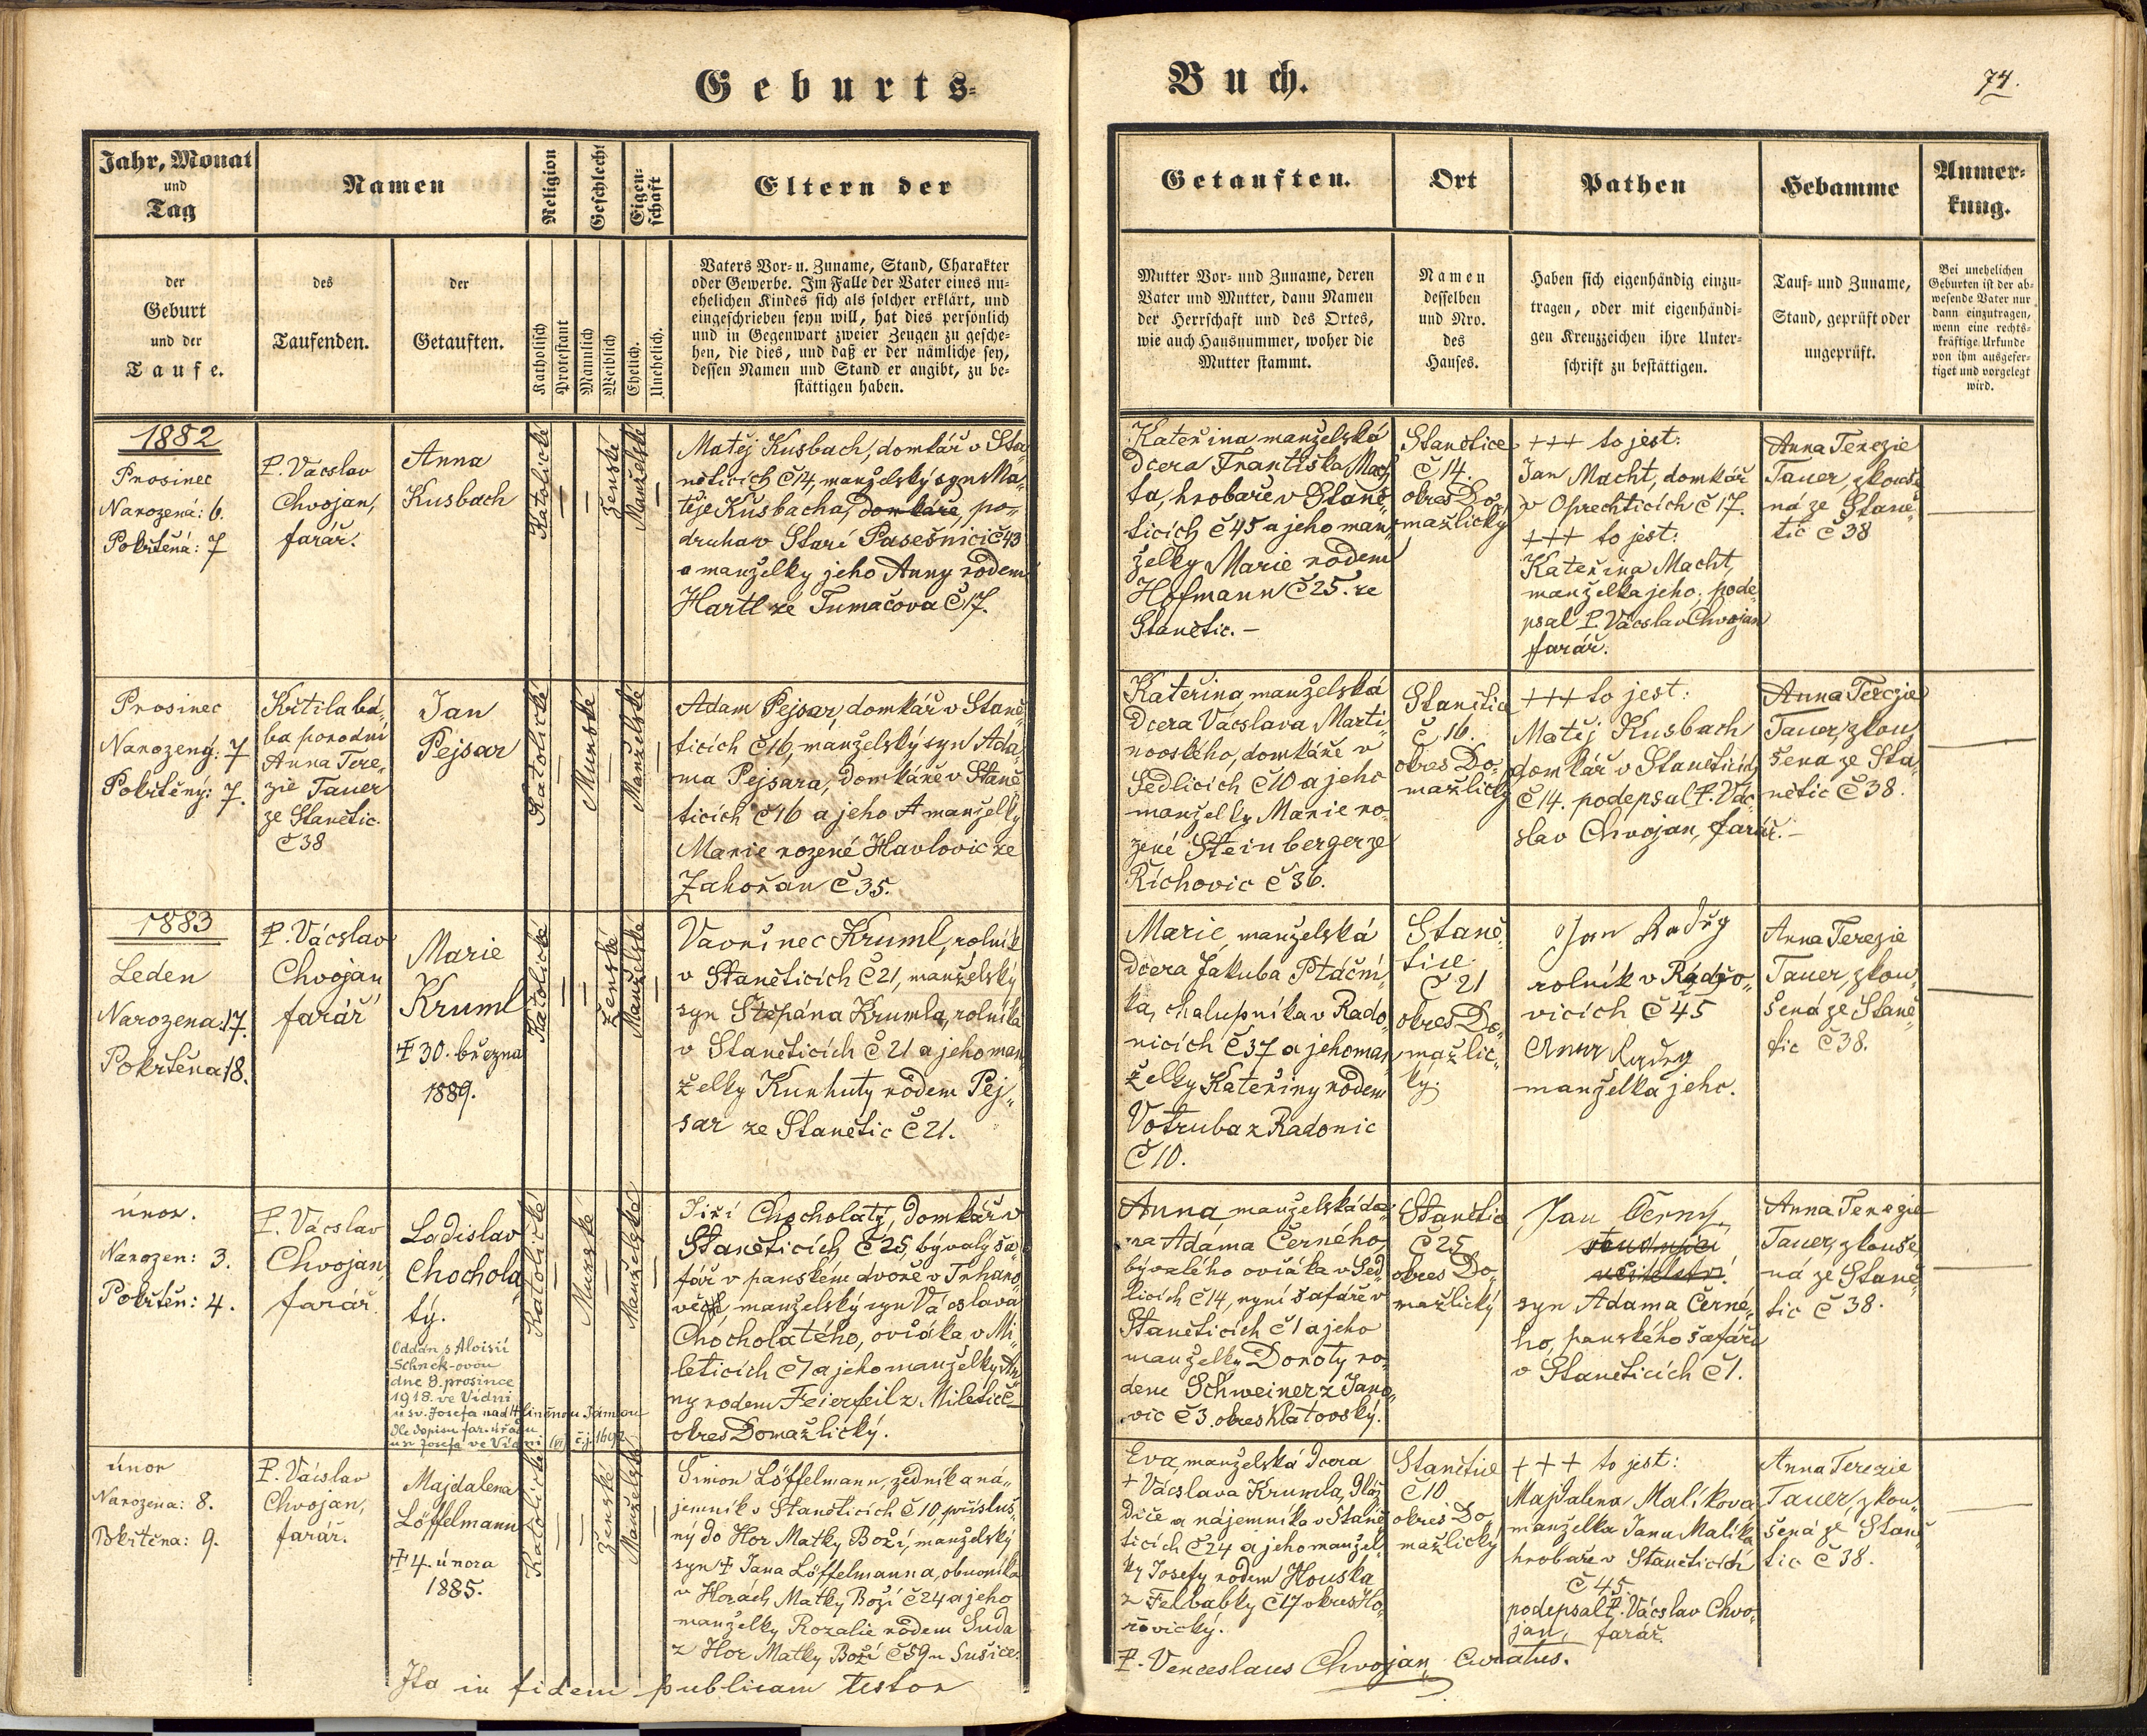 Geburts-
Buch.
74.
Jahr, Monat
und
Tag
Namen
Religion
Geschlecht
Eigen-
schaft
Eltern der
Getauften.
Ort
Pathen
Hebamme
Anmer-
kung.
der
Geburt
und der
Taufe.
des
Taufenden.
der
Getauften.
Katholisch
Protestant
Männlich
Weiblich
Ehelich.
Unehelich.
Vaters Vor- u. Zuname, Stand, Charakter
oder Gewerbe. Im Falle der Vater eines un-
ehelichen Kindes sich als solcher erklärt, und
eingeschrieben seyn will, hat dies persönlich
und in Gegenwart zweier Zeugen zu gesche-
hen, die dies, und daß er der nämliche sey,
dessen Namen und Stand er angibt, zu be-
stättigen haben.
Mutter Vor- und Zuname, deren
Vater und Mutter, dann Namen
der Herrschaft und des Ortes,
wie auch Hausnummer, woher die
Mutter stammt.
Namen
desselben
und Nro.
des
Hauses.
Haben sich eigenhändig einzu-
tragen, oder mit eigenhändi-
gen Kreuzzeichen ihre Unter-
schrift zu bestättigen.
Tauf- und Zuname,
Stand, geprüft oder
ungeprüft.
Bei unehelichen
Geburten ist der ab-
wesende Vater nur
dann einzutragen,
wenn eine rechts-
kräftige Urkunde
von ihm ausgefer-
tiget und vorgelegt
wird.
1882
Prosinec
Narozená: 6.
Pokřtěná: 7
P. Vácslav
Chvojan,
farář.
Anna
Kusbach
Katolické
Ženské
Manželské
Matěj Kusbach, domkář v Sta„
něticích č 14, manželský syn Ma„
těje Kusbacha, domkáře, po„
druha v Staré Pasečnici č 43
a manželky jeho Anny rodem
Hartl ze Tumačova č 17.
Kateřina manželská
dcera Františka Mach„
ta, hrobaře v Staně„
ticích č 45 a jeho man„
želky Marie rodem
Hofmann č 25. ze
Stanětic. –
Stanětice
č 14
okres Do„
mažlický
+++ to jest:
Jan Macht, domkář
v Oprechticích č 17.
+++ to jest:
Kateřina Macht,
manželka jeho; pode„
psal P. Vácslav Chvojan
farář.
Anna Terezie
Tauer, zkouše„
ná ze Staně„
tic č 38
Prosinec
Narozený: 7
Pokřtěný: 7.
Křtila bá„
ba porodní
Anna Tere„
zie Tauer
ze Stanětic
č 38
Jan
Pejsar
Katolické
Mužské
Manželské
Adam Pejsar, domkář v Staně„
ticích č 16, manželský syn Ada„
ma Pejsara, domkáře v Staně„
ticích č 16 a jeho manželky
Marie rozené Havlovic ze
Zahořan č 35.
Kateřina manželská
dcera Vácslava Marti„
novského, domkáře v
Sedlicích č 10 a jeho
manželky Marie ro„
zené Steinberger ze
Říchovic č 36.
Stanětice
č 16.
okres Do„
mažlický
+++ to jest:
Matěj Kusbach
domkář v Staněticích
č 14. podepsal P. Vác„
slav Chvojan, farář. –
Anna Terezie
Tauer, zkou„
šená ze Sta„
nětic č 38.
1883
Leden
Narozena: 17.
Pokřtěna: 18.
P. Vácslav
Chvojan
farář
Marie
Kruml
✝ 30. března
1889.
Katolické
Ženské
Manželské
Vavřinec Kruml, rolník
v Staněticích č 21, manželský
syn Štěpána Krumla, rolníka
v Staněticích č 21 a jeho man„
želky Kunhuty rodem Pej„
sar ze Stanětic č 21.
Marie, manželská
dcera Jakuba Ptáční„
ka, chalupníka v Rado„
nicích č 37 a jeho man„
želky Kateřiny rodem
Votruba z Radonic
č 10.
Staně„
tice
č 21
okres Do„
mažlic„
ký.
Jan Radry
rolník v Radžo„
vicích č 45
Anna Radry
manželka jeho.
Anna Terezie
Tauer, zkou„
šená ze Staně„
tic č 38.
únor.
Narozen: 3.
Pokřtěn: 4.
P. Vácslav
Chvojan,
farář.
Ladislav
Chochola„
tý.
Oddán s Aloisií
Schnek-ovou
dne 8. prosince
1918. ve Vídni
u sv. Josefa nad Hliněnou Jámou
dle dopisu far. úřadu
u sv. Josefa ve Vídni (VI) č.j. 1692
Katolické
Mužské
Manželské
Jiří Chocholatý, domkář v
Staněticích č 25, bývalý ša„
fář v panském dvoře v Trhano„
vech, manželský syn Vácslava
Chocholatého, ovčáka v Mi„
leticích č 1 a jeho manželky An„
ny rodem Feierfeil z Miletič
okres Domažlický.
Anna manželská dce„
ra Adama Černého,
bývalého ovčáka v Sed„
licích č 14, nyní šafáře v
Staněticích č 1 a jeho
manželky Doroty ro„
dem Schweiner z Jano„
vic č 3. okres Klatovský.
Stanětice
č 25
okres Do„
mažlický
Jan Černý,
syn Adama Černé„
ho, panského šafáře
v Staněticích č 1.
Anna Terezie
Tauer, zkouše„
ná ze Staně„
tic č 38.
únor
Narozena: 8.
Pokřtěna: 9.
P. Vácslav
Chvojan,
farář.
Majdalena
Löffelmann
✝ 4. února
1885.
Katolické
Ženské
Manželské
Šimon Löffelmann, zedník a ná„
jemník v Staněticích č 10, přísluš„
ný do Hor Matky Boží, manželský
syn ✝ Jana Löffelmanna, obuvníka
v Horách Matky Boží č 24 a jeho
manželky Rozalie rodem Suda
z Hor Matky Boží č 59 u Sušice.
Eva, manželská dcera
+ Vácslava Krumla,
a nájemníka v Staně„
ticích č 24 a jeho manžel„
ky Josefy rodem Houska
z Felbabky č 17 okres Ho„
řovický.
Stanětice
č 10
okres Do„
mažlický
+++ to jest:
Majdalena Malíková
manželka Jana Malíka
hrobaře v Staněticích
č 45.
podepsal P. Vácslav Chvo„
jan, farář.
Anna Terezie
Tauer, zkou„
šená ze Staně„
tic č 38.
Ita in fidem publicam testor
P. Venceslaus Chvojan, Curatus.